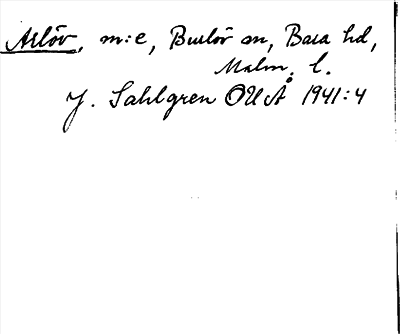 Arlöv, m:e, Burlöv sn, Bara hd,
Malm. l.
J. Sahlgren OUÅ 1941:4